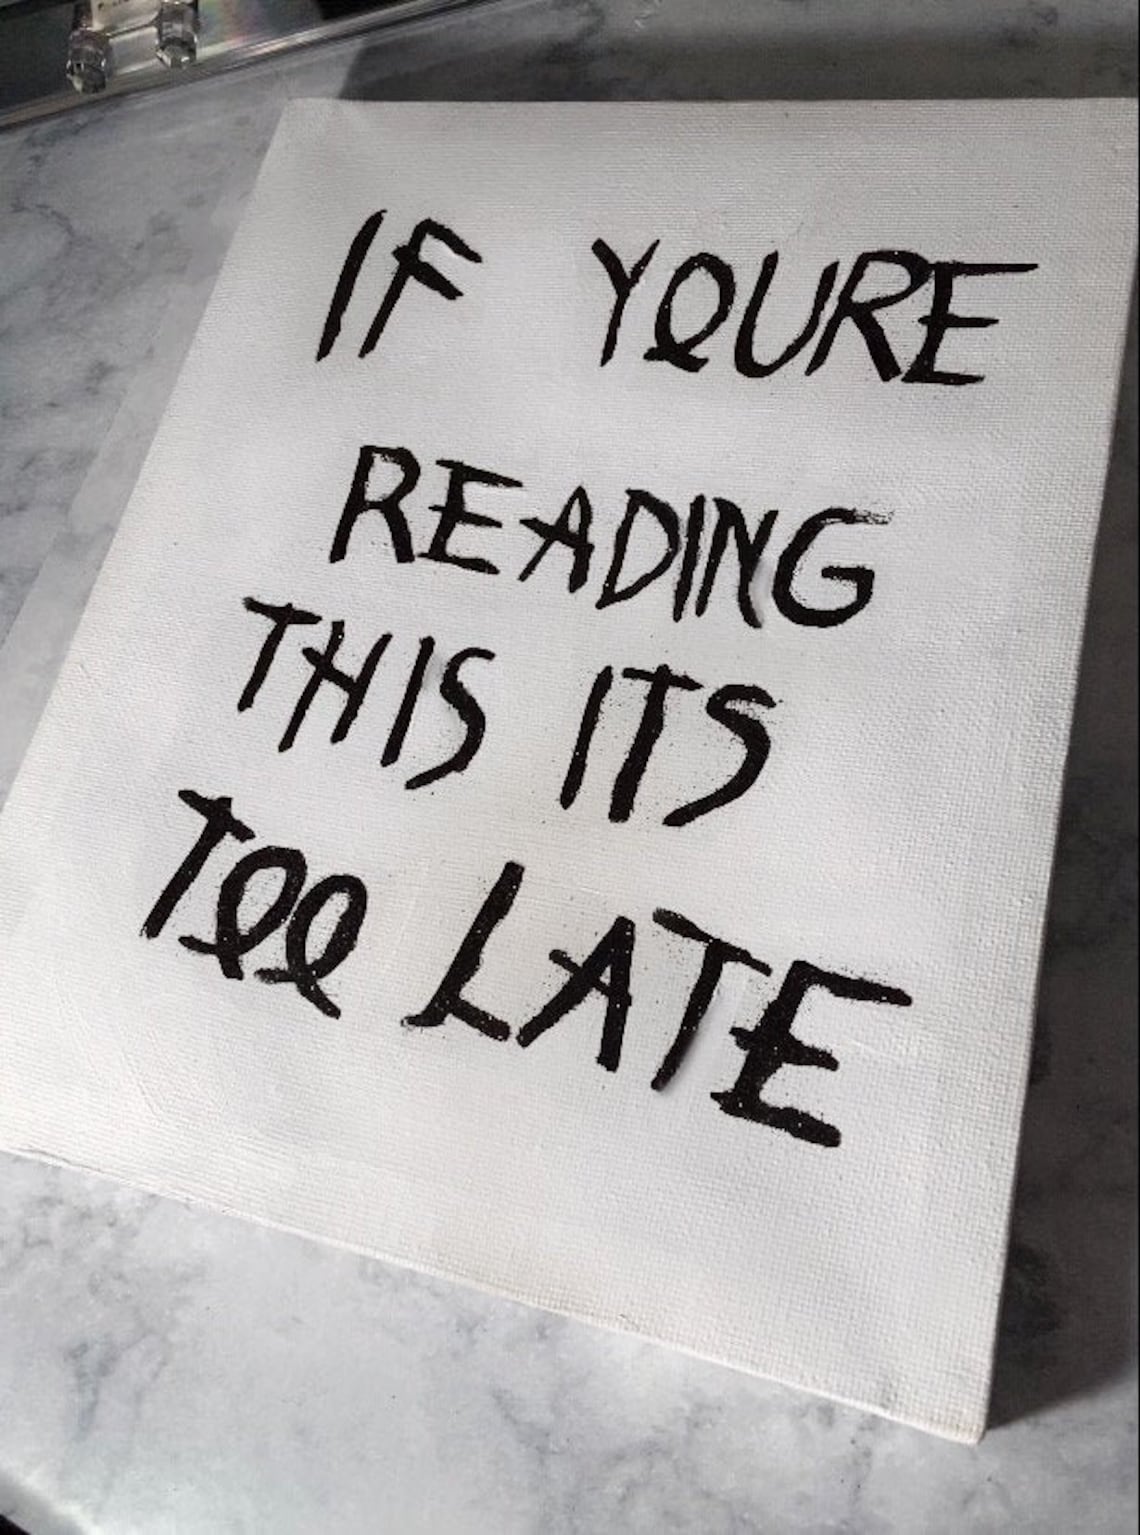 IF YOURE
READING
THIS ITS
TOO LATE